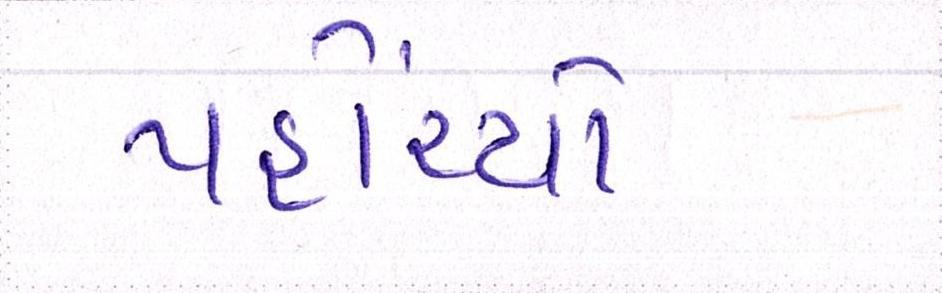 પહોંચ્યો